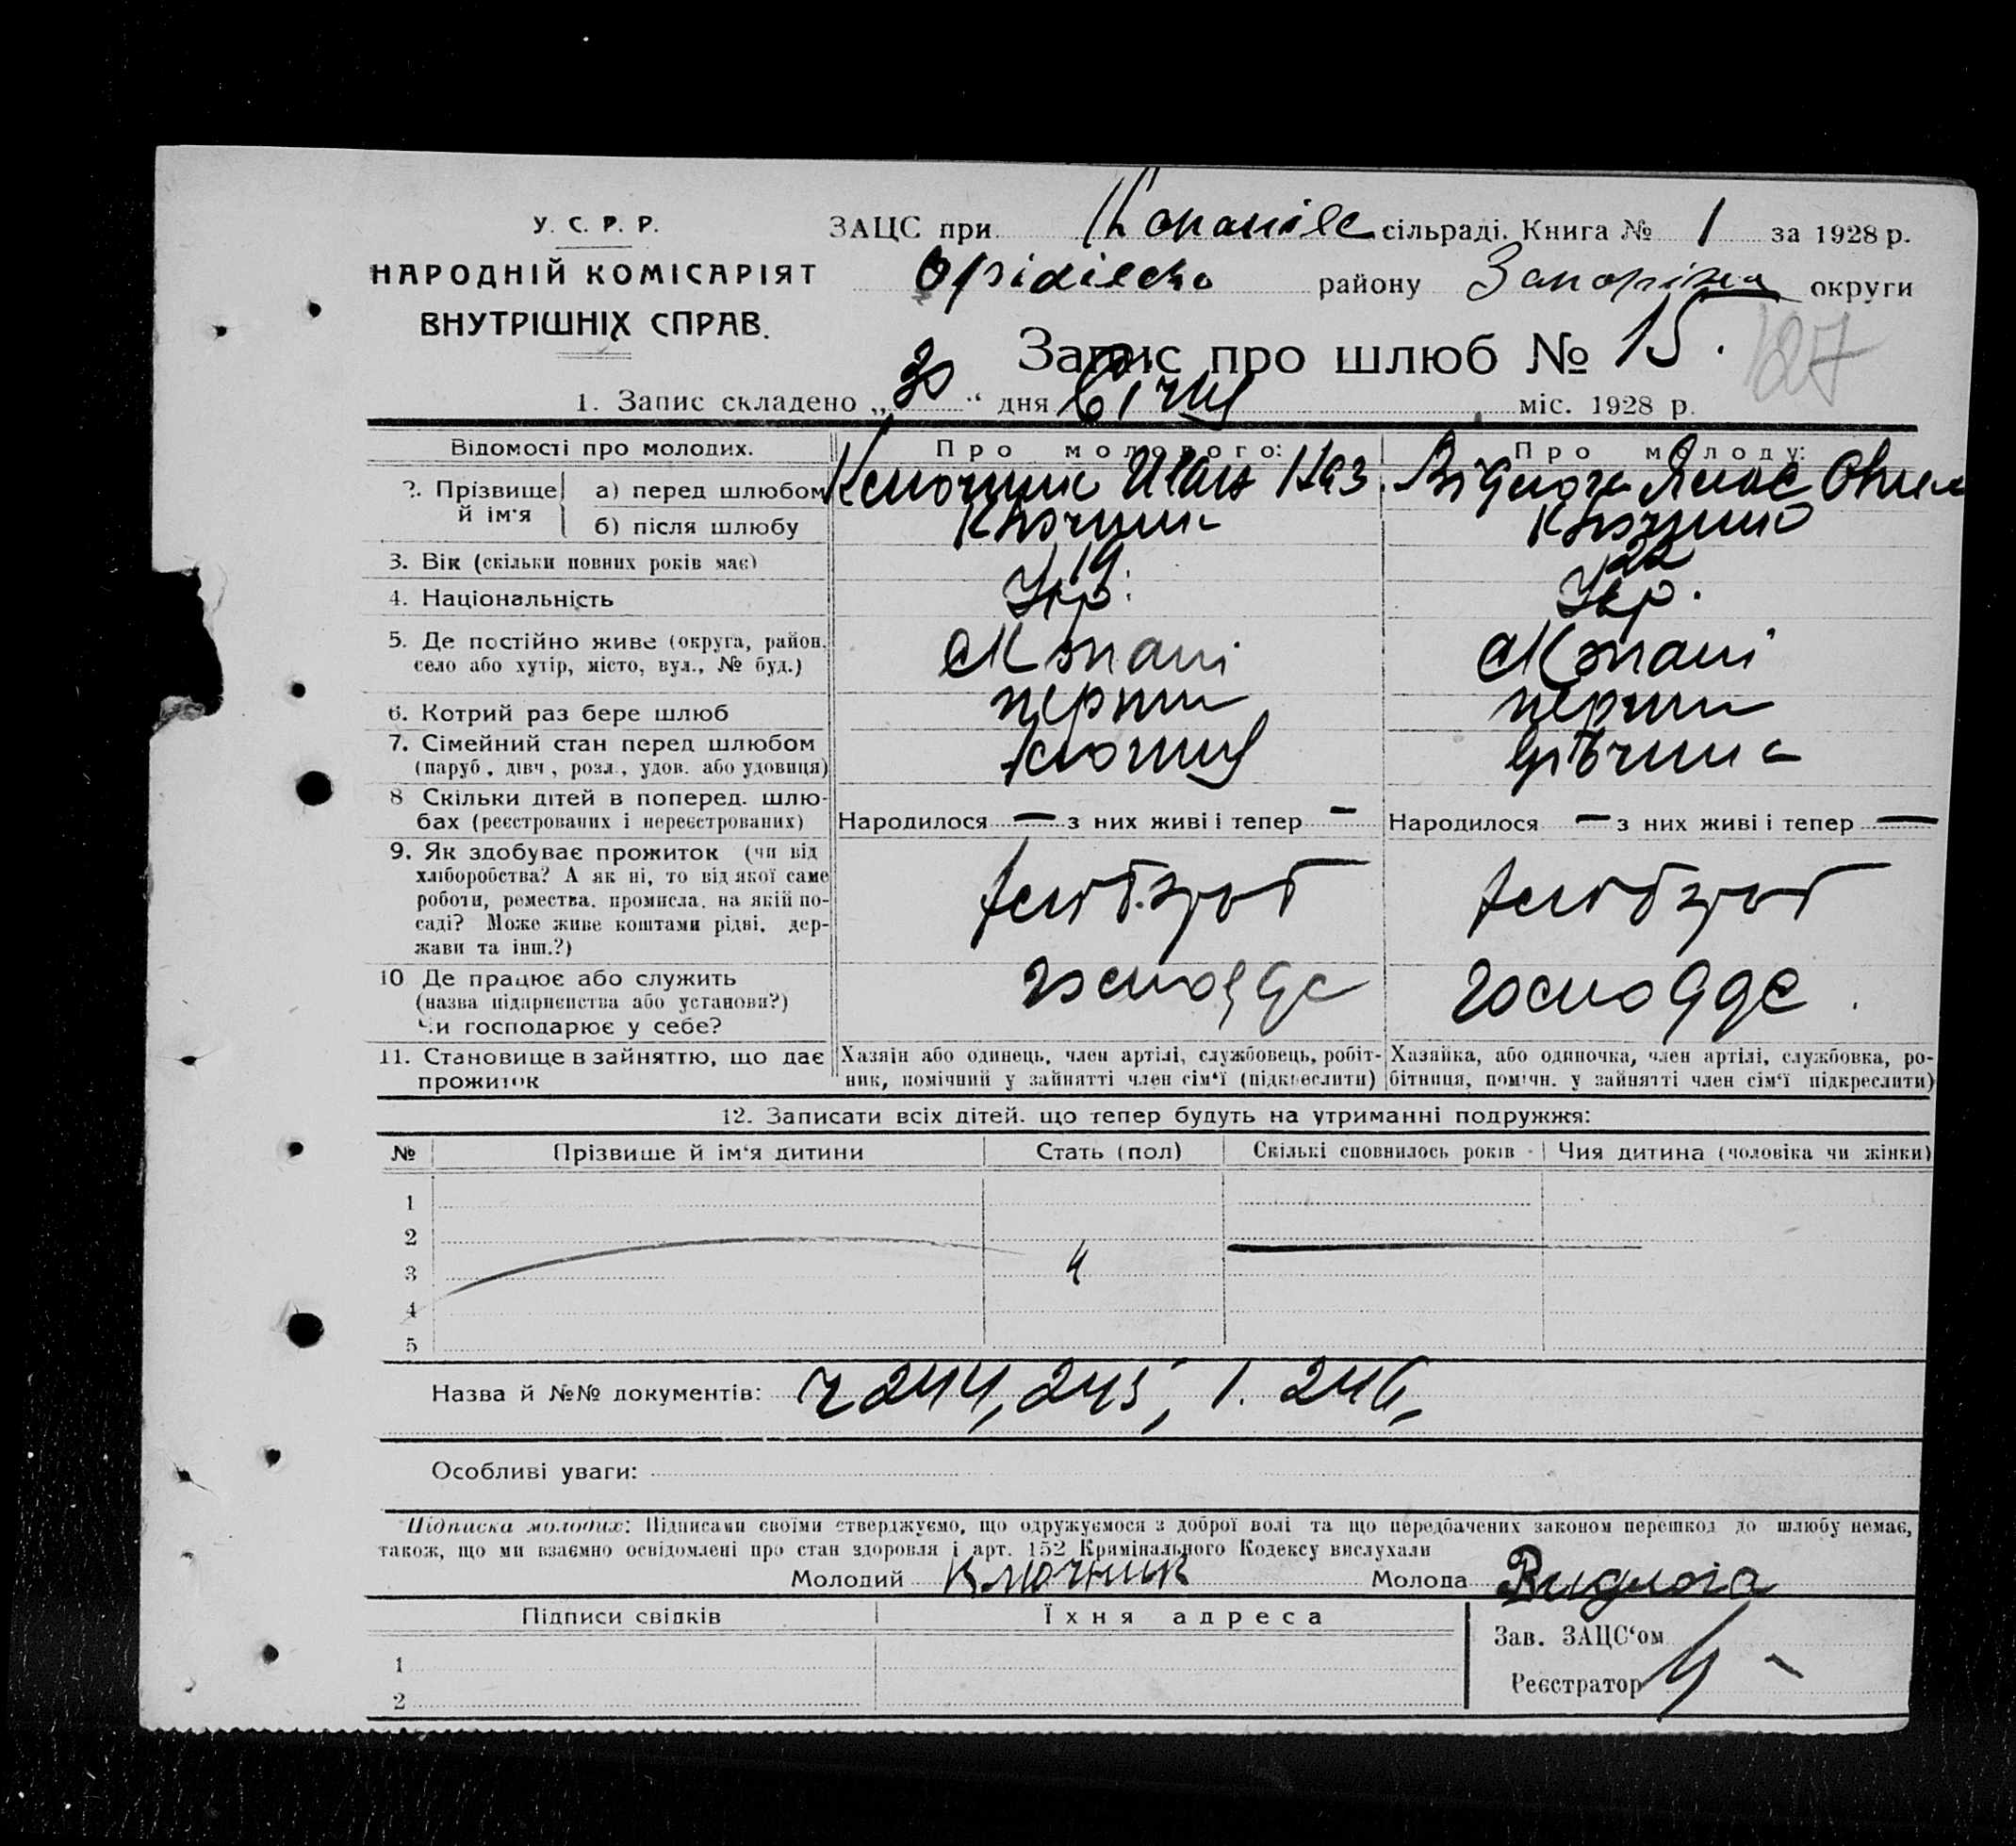 У. С. Р. Р.
НАРОДНІЙ КОМІСАРІЯТ
ВНУТРІШНІХ СПРАВ.
ЗАЦС при сільраді. Книга № 1 за 1928 р.
району округи
Запис про шлюб № 15.
127
1. Запис складено „30" дня Січня міс. 1928 р.
Відомості про молодих. Про молодого: Про молоду:
2. Прізвище й ім'я
а) перед шлюбом Ключник Иван
б) після шлюбу Ключник
3. Вік (скільки повних років має) 19 22
4. Національність Укр. Укр.
5. Де постійно живе (округа, район, село або хутір, місто, вул., № буд.) с Копані с Копані
6. Котрий раз бере шлюб перший перший
7. Сімейний стан перед шлюбом дівчина
(паруб., дівч., розл., удов. або удовиця)
8 Скільки дітей в поперед. шлюбах (реєстрованих і нереєстрованих)
Народилося — з них живі і тепер — Народилося — з них живі і тепер —
9. Як здобуває прожиток (чи від хліборобства? А як ні, то від якої саме роботи, ремества, промисла, на якій посаді? Може живе коштами рідні, держави та інш.?)
10 Де працює або служить
(назва підприємства або установи?)
Чи господарює у себе?
11. Становище в зайняттю, що дає прожиток
Хазяїн або одинець, член артілі, службовець, робітник, помічний у зайнятті член сім'ї (підкреслити)
Хазяйка, або одиночка, член артілі, службовка, робітниця, помічн. у зайнятті член сім'ї підкреслити)
12. Записати всіх дітей, що тепер будуть на утриманні подружжя:
№ Прізвище й ім'я дитини Стать (пол) Скількі сповнилось років Чия дитина (чоловіка чи жінки)
1
2
3
4
5
Назва й №№ документів: 244, 245, 246,
Особливі уваги:
Підписка молодих: Підписами своїми стверджуємо, що одружуємося з доброї волі та що передбачених законом перешкод до шлюбу немає,
також, що ми взаємно освідомлені про стан здоровля і арт. 152 Кримінального Кодексу вислухали
Молодий Ключник Молода
Підписи свідків Їхня адреса
Зав. ЗАЦС'ом
1
Реєстратор
2